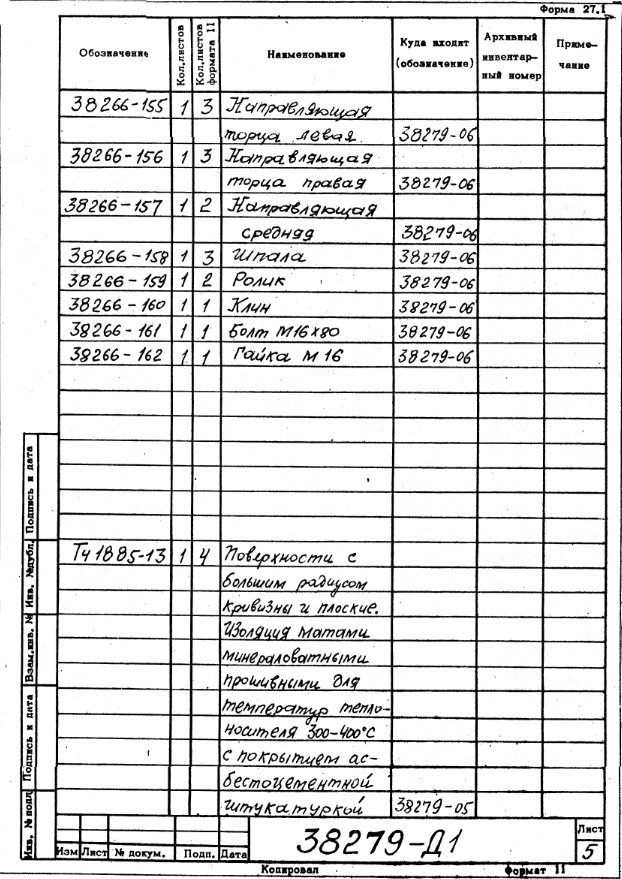 Форма 27.1
Обозначение Кол.листов Кол.листов формата 11 Наименование Куда входит (обозначение) Архивный инвентарный номер Примечание
38266-155 1 3 Направляющая
торца левая 38279-06
38266-156 1 3 Направляющая
торца правая 38279-06
38266-157 1 2 Направляющая
средняя 38279-06
38266-158 1 3 Шпала 38279-06
38266-159 1 2 Ролик 38279-06
38266-160 1 1 Клин 38279-06
38266-161 1 1 Болт М16х80 38279-06
38266-162 1 1 Гайка М16 38279-06
ТЧ 1885-13 1 4 Поверхности с
большим радиусом
кривизны и плоские.
Изоляция матами
минераловатными
прошивными для
температур тепло-
носителя 300-400°С
с покрытием ас-
бестоцементной
штукатуркой 38279-05
Инв. № подл
Подпись и дата
Взам.инв. №
Инв. №дубл.
Подпись и дата
Изм Лист № докум. Подп. Дата
38279-Д1
Лист
5
Копировал Формат 11